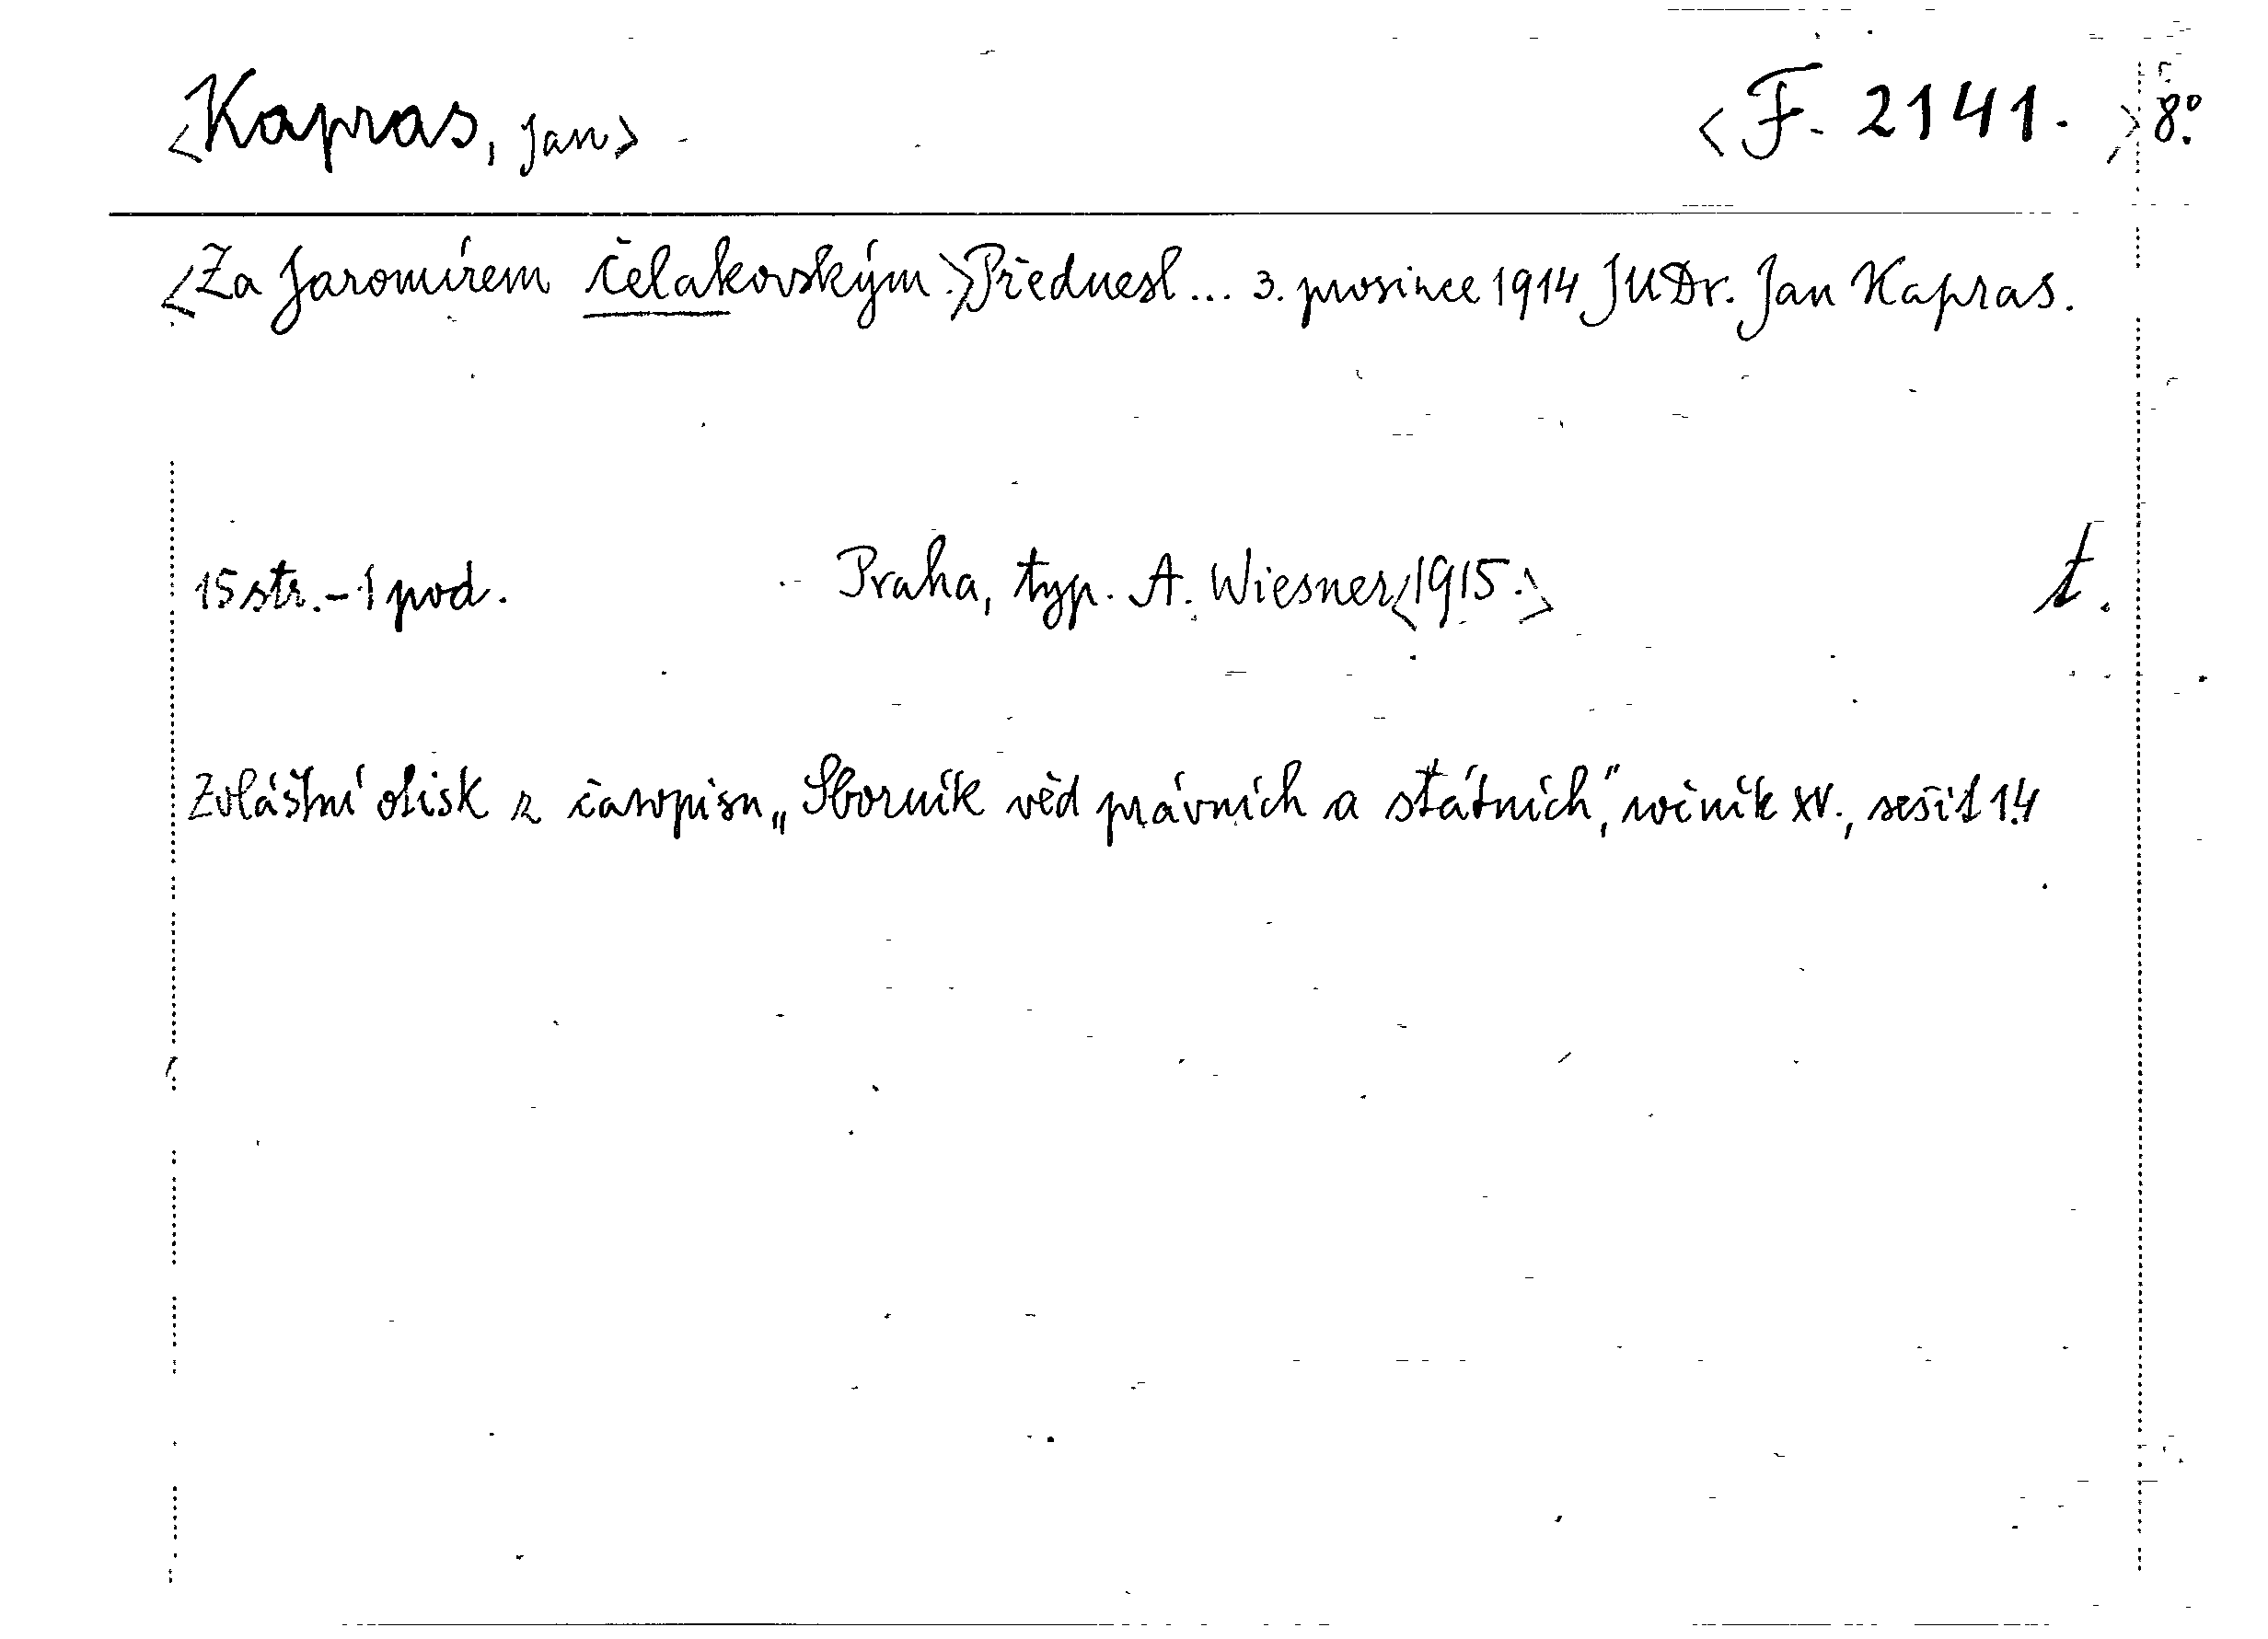 <Kapras, Jan> <F. 2141.> 8.°
<Za Jaromírem Čelakovským.> Přednesl... 3. prosince 1914 JUDr. Jan Kapras.
15 str. - 1 pod. Praha, typ. A. Wiesner <1915.> t.
Zvláštní otisk z časopisu „Sborník věd právních a státních", ročník XV., sešit 1.4